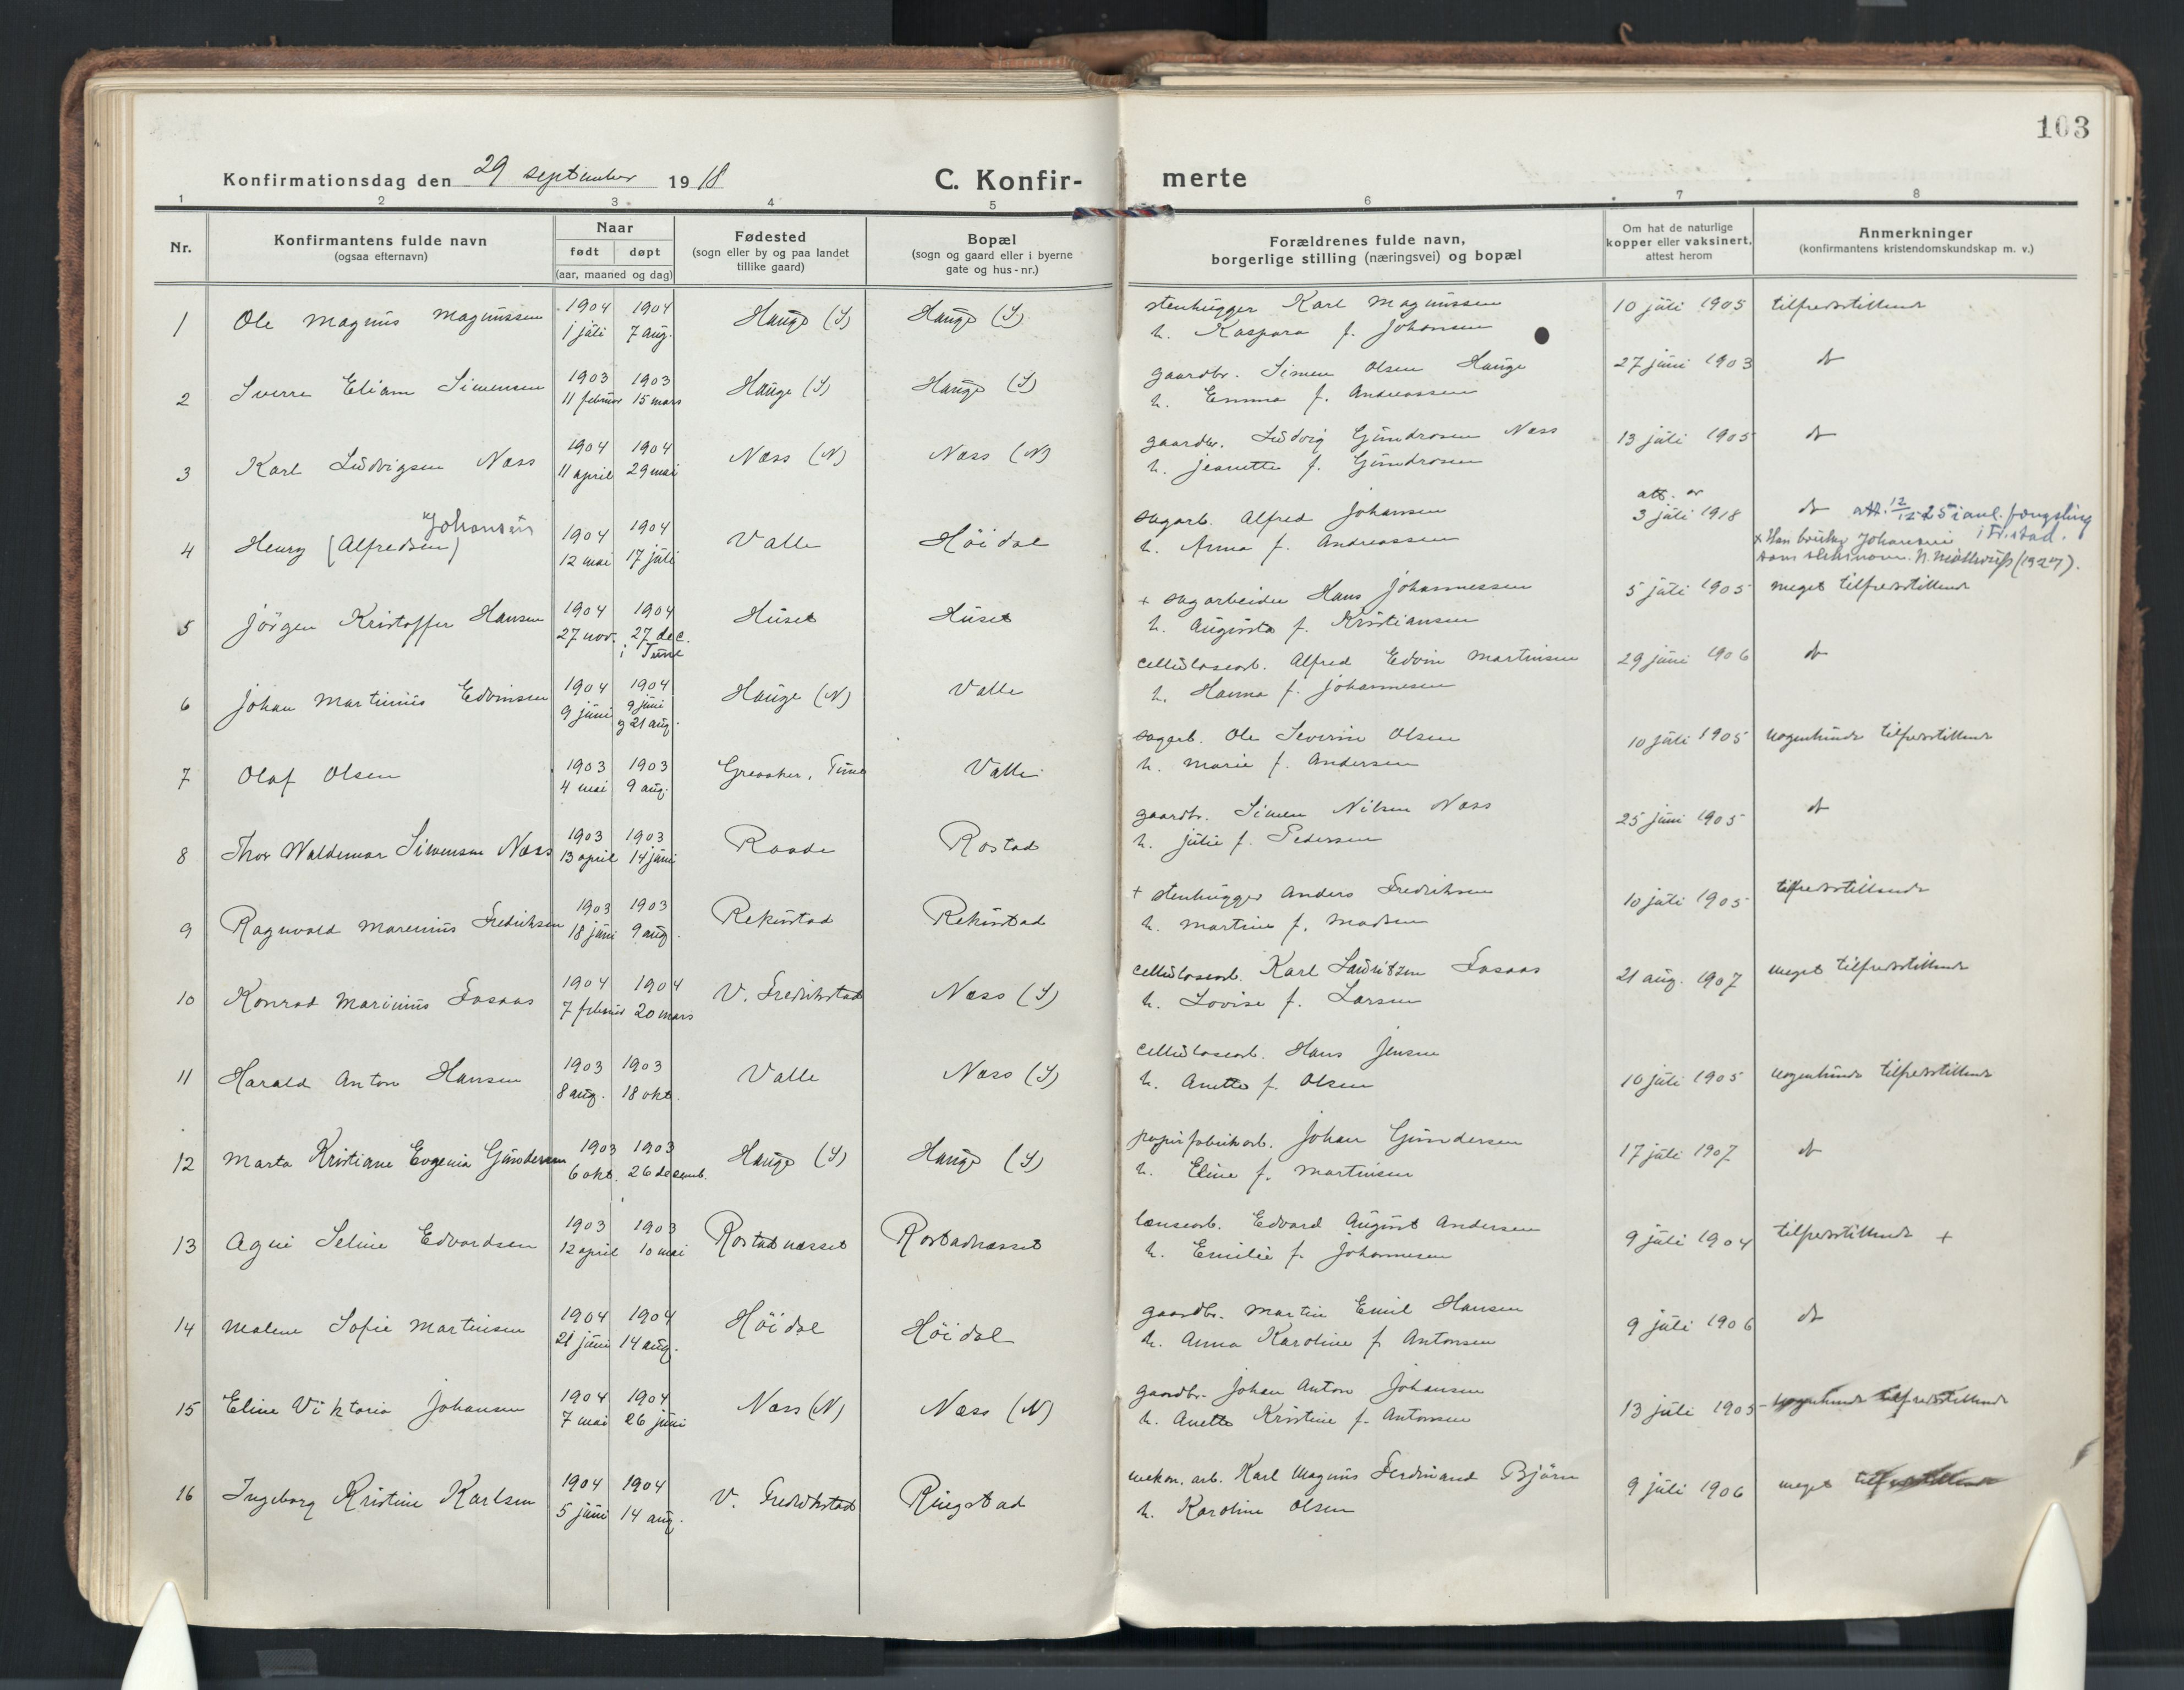 103
Konfirmationsdag den 29 september 1918
C. Konfir-merte
1 2 3 4 5 6 7 8
Nr.
Konfirmantens fulde navn
(ogsaa efternavn)
Naar
født døpt
(aar, maaned og dag)
Fødested
(sogn eller by og paa landet
tillike gaard)
Bopæl
(sogn og gaard eller i byerne
gate og hus-nr.)
Forældrenes fulde navn,
borgerlige stilling (næringsvei) og bopæl
Om hat de naturlige
kopper eller vaksinert,
attest herom
Anmerkninger
(konfirmantens kristendomskundskap m. v.)
1 Ole Magnus Magnussen 1904 1 juli 1904 7 aug. Hauge (S) Hauge (S) stenhugger Karl Magnussen 10 juli 1905 tilfredsstillende
h. Kaspara f. Johansen
2 Sverre Eliam Simensen 1903 11 februar 1903 15 mars Hauge (S) Hauge (S) gaardbr. Simen Olsen Hauge 27 juni 1903 do
h. Emma f. Andreassen
3 Karl Ludvigsen Næss 1904 11 april 1904 29 mai Næss (N) Næss (N) gaardbr. Ludvig Gundrosen Næss 13 juli 1905 do
h. Jeanette f. Gundrosen
4 Henry (Alfredsen) x Johansen 1904 12 mai 1904 17 juli Valle Höidal sagarb. Alfred Johansen att. av 3 juli 1918 do att. 12/12-25 i anl. fængsling
h. Anna f. Andreassen i Fr.stad.
x Han bruker Johansen
som slektsnavn. (1927).
5 Jörgen Kristoffer Hansen 1904 27 nov. 1904 27 dec. i Tune Huset Huset + sagarbeider Hans Johannessen 5 juli 1905 meget tilfredsstillende
h. Augusta f. Kristiansen
6 Johan Martinius Edvinsen 1904 9 juni 1904 9 juni g 21 aug. Hauge (N) Valle cellulosearb. Alfred Edvin Martinsen 29 juni 1906 do
h. Hanna f. Johannesen
7 Olaf Olsen 1903 4 mai 1903 9 aug. Greaaker, Tune Valle sagarb. Ole Severin Olsen 10 juli 1905 nogenlunde tilfredsstillende
h. Marie f. Andersen
8 Thor Waldemar Simensen Næss 1903 13 april 1903 14 juni Raade Rostad gaardbr. Simen Nilsen Næss 25 juni 1905 do
h. Julie f. Pedersen
9 Ragnvald Marenius Fredriksen 1903 18 juni 1903 9 aug. Rekustad Rekustad + stenhugger Anders Fredriksen 10 juli 1905 tilfredsstillende
h. Martine f. Madsen
10 Konrad Marinius Fosaas 1904 7 februar 1904 20 mars V. Fredrikstad Næss (S) cellulosearb. Karl Lauritzen Fosaas 21 aug. 1907 meget tilfredsstillende
h. Lovise f. Larsen
11 Harald Anton Hansen 1903 8 aug. 1903 18 okt. Valle Næss (S) cellulosearb. Hans Jensen 10 juli 1905 nogenlunde tilfredsstillende
h. Anette f. Olsen
12 Marta Kristiane Evgenia Gundersen 1903 6 okt. 1903 26 decemb. Hauge (S) Hauge (S) papirfabrikarb. Johan Gundersen 17 juli 1907 do
h. Eline f. Martinsen
13 Agni Seline Edvardsen 1903 12 april 1903 10 mai Rostadnæsset Rostadnæsset lænsearb. Edvard August Andersen 9 juli 1904 tilfredsstillende +
h. Emilie f. Johannesen
14 Malene Sofie Martinsen 1904 21 juni 1904 14 aug. Höidal Höidal gaardbr. Martin Emil Hansen 9 juli 1906 do
h. Anna Karoline f. Antonsen
15 Eline Viktoria Johansen 1904 7 mai 1904 26 juni Næss (N) Næss (N) gaardbr. Johan Anton Johansen 13 juli 1905 nogenlunde tilfredsstillende
h. Anette Kristine f. Antonsen
16 Ingeborg Kristine Karlsen 1904 5 juni 1904 14 aug. V. Fredrikstad Ringstad mekan. arb. Karl Magnus Ferdinand Björn 9 juli 1906 meget tilfredsstillende
h. Karoline Olsen